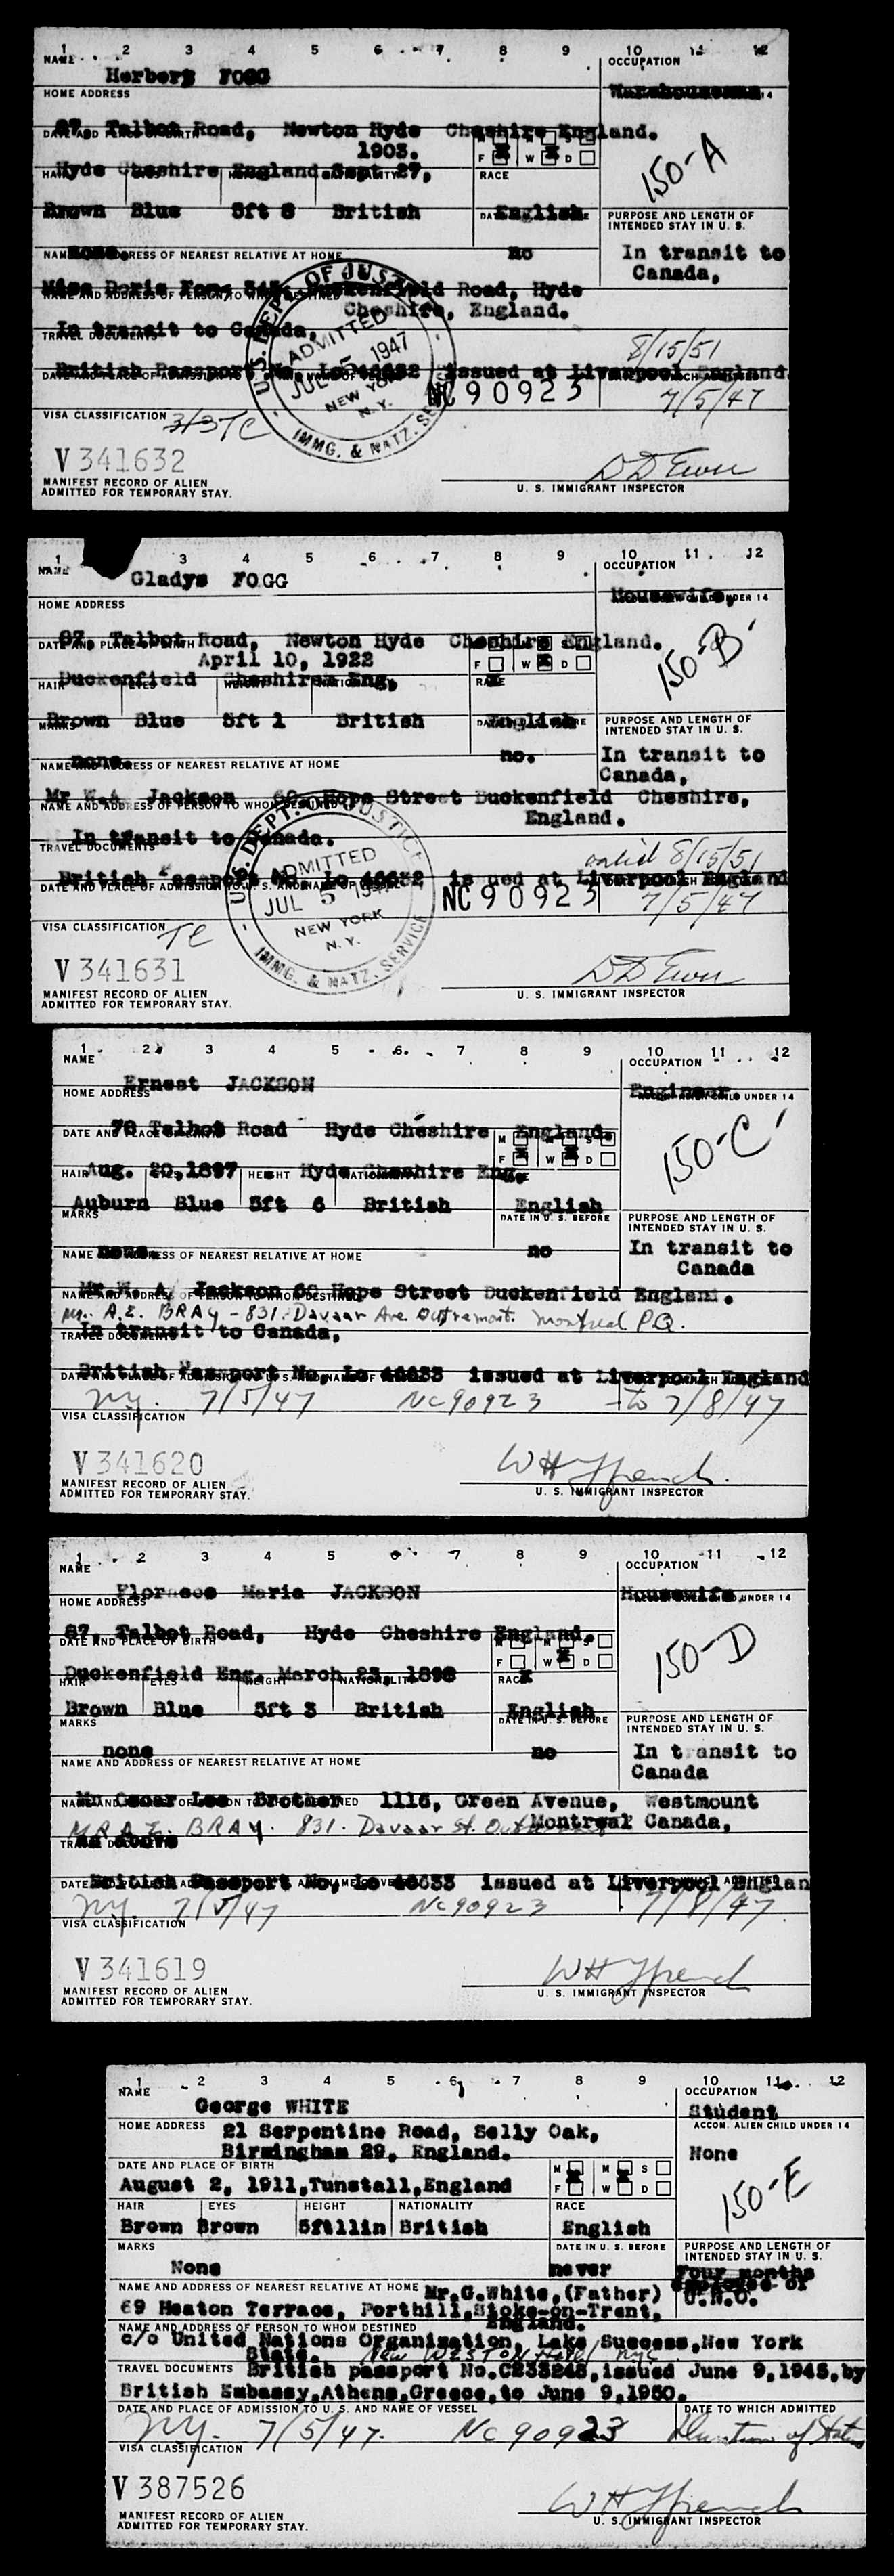 1 2 3 4 5 6 7 8 9 10 11 12
NAME OCCUPATION
Herbert FOGG
HOME ADDRESS Warehouseman 14
87, Talbot Road, Newton Hyde Cheshire England.
DATE AND PLACE OF BIRTH
1903.
F W D
Hyde Cheshire England Sept 27,
HAIR RACE
150-A
Brown Blue 5ft 8 British English
PURPOSE AND LENGTH OF
INTENDED STAY IN U. S.
none. no In transit to
NAME AND ADDRESS OF NEAREST RELATIVE AT HOME
Canada,
Miss Doris Fogg Duckenfield Road, Hyde
NAME AND ADDRESS OF PERSON TO WHOM DESTINED
Cheshire, England.
In transit to Canada,
TRAVEL DOCUMENTS
8/15/51
British Passport No, Lo 46632 issued at Liverpool England
U.S. DEPT. OF JUSTICE
ADMITTED
JUL 5 1947
NEW YORK
N. Y.
IMMG. & NATZ. SERVICE
NC 90923 7/5/47
VISA CLASSIFICATION 3/3 TC
V 341632
MANIFEST RECORD OF ALIEN
ADMITTED FOR TEMPORARY STAY.
U. S. IMMIGRANT INSPECTOR
1 3 4 5 6 7 8 9 10 11 12
NAME OCCUPATION
Gladys FOGG
HOME ADDRESS Housewife, UNDER 14
87, Talbot Road, Newton Hyde Cheshire England.
DATE AND PLACE OF BIRTH
April 10, 1922
F W D
150-B
Duckenfield Cheshire Eng,
HAIR EYES HEIGHT NATIONALITY RACE
Brown Blue 5ft 1 British English
MARKS
PURPOSE AND LENGTH OF
INTENDED STAY IN U. S.
none. no. In transit to
NAME AND ADDRESS OF NEAREST RELATIVE AT HOME
Canada,
Mr W.A Jackson Hope Street Duckenfield Cheshire,
NAME AND ADDRESS OF PERSON TO WHOM DESTINED
England.
In transit to Canada.
TRAVEL DOCUMENTS
valid 8/15/51
British Passport No, Lo 46632 issued at Liverpool England
DATE AND PLACE OF ADMISSION TO U. S. AND NAME OF VESSEL
U.S. DEPT. OF JUSTICE
ADMITTED
JUL 5 1947
NEW YORK
N. Y.
IMMG. & NATZ. SERVICE
NC 90923 7/5/47
VISA CLASSIFICATION TC
V 341631
MANIFEST RECORD OF ALIEN
ADMITTED FOR TEMPORARY STAY.
U. S. IMMIGRANT INSPECTOR
1 2 3 4 5 6 7 8 9 10 11 12
NAME OCCUPATION
Ernest JACKSON
HOME ADDRESS Engineer UNDER 14
78 Talbot Road Hyde Cheshire England.
DATE AND PLACE OF BIRTH
M M S
F W D
150-C
Aug. 20,1897 Hyde Cheshire Eng.
HAIR EYES HEIGHT NATIONALITY
Auburn Blue 5ft 6 British English
MARKS DATE IN U. S. BEFORE
PURPOSE AND LENGTH OF
INTENDED STAY IN U. S.
none. no In transit to
NAME AND ADDRESS OF NEAREST RELATIVE AT HOME
Canada
Mr W. A Jackson Hope Street Duckenfield England.
NAME AND ADDRESS OF PERSON TO WHOM DESTINED
Mr. A.E. BRAY - 831 Davaar Ave Outremont. Montreal P.Q.
In transit to Canada,
TRAVEL DOCUMENTS
British Passport No, Lo 46633 issued at Liverpool England
DATE AND PLACE OF ADMISSION TO U. S. AND NAME OF VESSEL
NY. 7/5/47 NC 90923 to 7/8/47
VISA CLASSIFICATION
V 341620
MANIFEST RECORD OF ALIEN
ADMITTED FOR TEMPORARY STAY.
W H Ffrench.
U. S. IMMIGRANT INSPECTOR
1 2 3 4 5 6 7 8 9 10 11 12
NAME OCCUPATION
Florence Maria JACKSON
HOME ADDRESS Housewife UNDER 14
87, Talbot Road, Hyde Cheshire England.
DATE AND PLACE OF BIRTH
F W D
150-D
Duckenfield Eng. March 23, 1898
HAIR EYES HEIGHT NATIONALITY RACE
Brown Blue 5ft 3 British English
MARKS DATE IN U. S. BEFORE
PURPOSE AND LENGTH OF
INTENDED STAY IN U. S.
none no In t ansit to
NAME AND ADDRESS OF NEAREST RELATIVE AT HOME
Canada
Mr Oscar Lee Brother 1115, Green Avenue, Westmount
NAME AND ADDRESS OF PERSON TO WHOM DESTINED
MR A.E. BRAY. 831. Davaar St. Montreal Canada,
as above
TRAVEL DOCUMENTS
British Passport No, Lo 46633 issued at Liverpool Englan
NY. 7/5/47 NC 90923 7/8/47
VISA CLASSIFICATION
V 341619
MANIFEST RECORD OF ALIEN
ADMITTED FOR TEMPORARY STAY.
W H Ffrench
U. S. IMMIGRANT INSPECTOR
1 2 3 4 5 6 7 8 9 10 11 12
NAME OCCUPATION
George WHITE Student
HOME ADDRESS 21 Serpentine Road, Selly Oak, ACCOM. ALIEN CHILD UNDER 14
Birmingham 29, England. None
DATE AND PLACE OF BIRTH M M S
August 2, 1911,Tunstall,England F W D
150-E
HAIR EYES HEIGHT NATIONALITY RACE
Brown Brown 5ft11in British English
MARKS DATE IN U. S. BEFORE PURPOSE AND LENGTH OF
INTENDED STAY IN U. S.
None never Four months
employee of
NAME AND ADDRESS OF NEAREST RELATIVE AT HOME Mr.G.White,(Father) U.N.O.
69 Heaton Terrace, Porthill,Stoke-on-Trent,
England.
NAME AND ADDRESS OF PERSON TO WHOM DESTINED
c/o United Nations Organisation, Lake Success,New York
State. New WESTON Hotel NYC
TRAVEL DOCUMENTS British passport No.C233248,issued June 9,1945,by
British Embassy,Athens,Greece,to June 9,1950.
DATE AND PLACE OF ADMISSION TO U. S. AND NAME OF VESSEL DATE TO WHICH ADMITTED
NY. 7/5/47. NC 90923 Duration of Status
VISA CLASSIFICATION
V 387526
MANIFEST RECORD OF ALIEN
ADMITTED FOR TEMPORARY STAY.
W H Ffrench
U. S. IMMIGRANT INSPECTOR